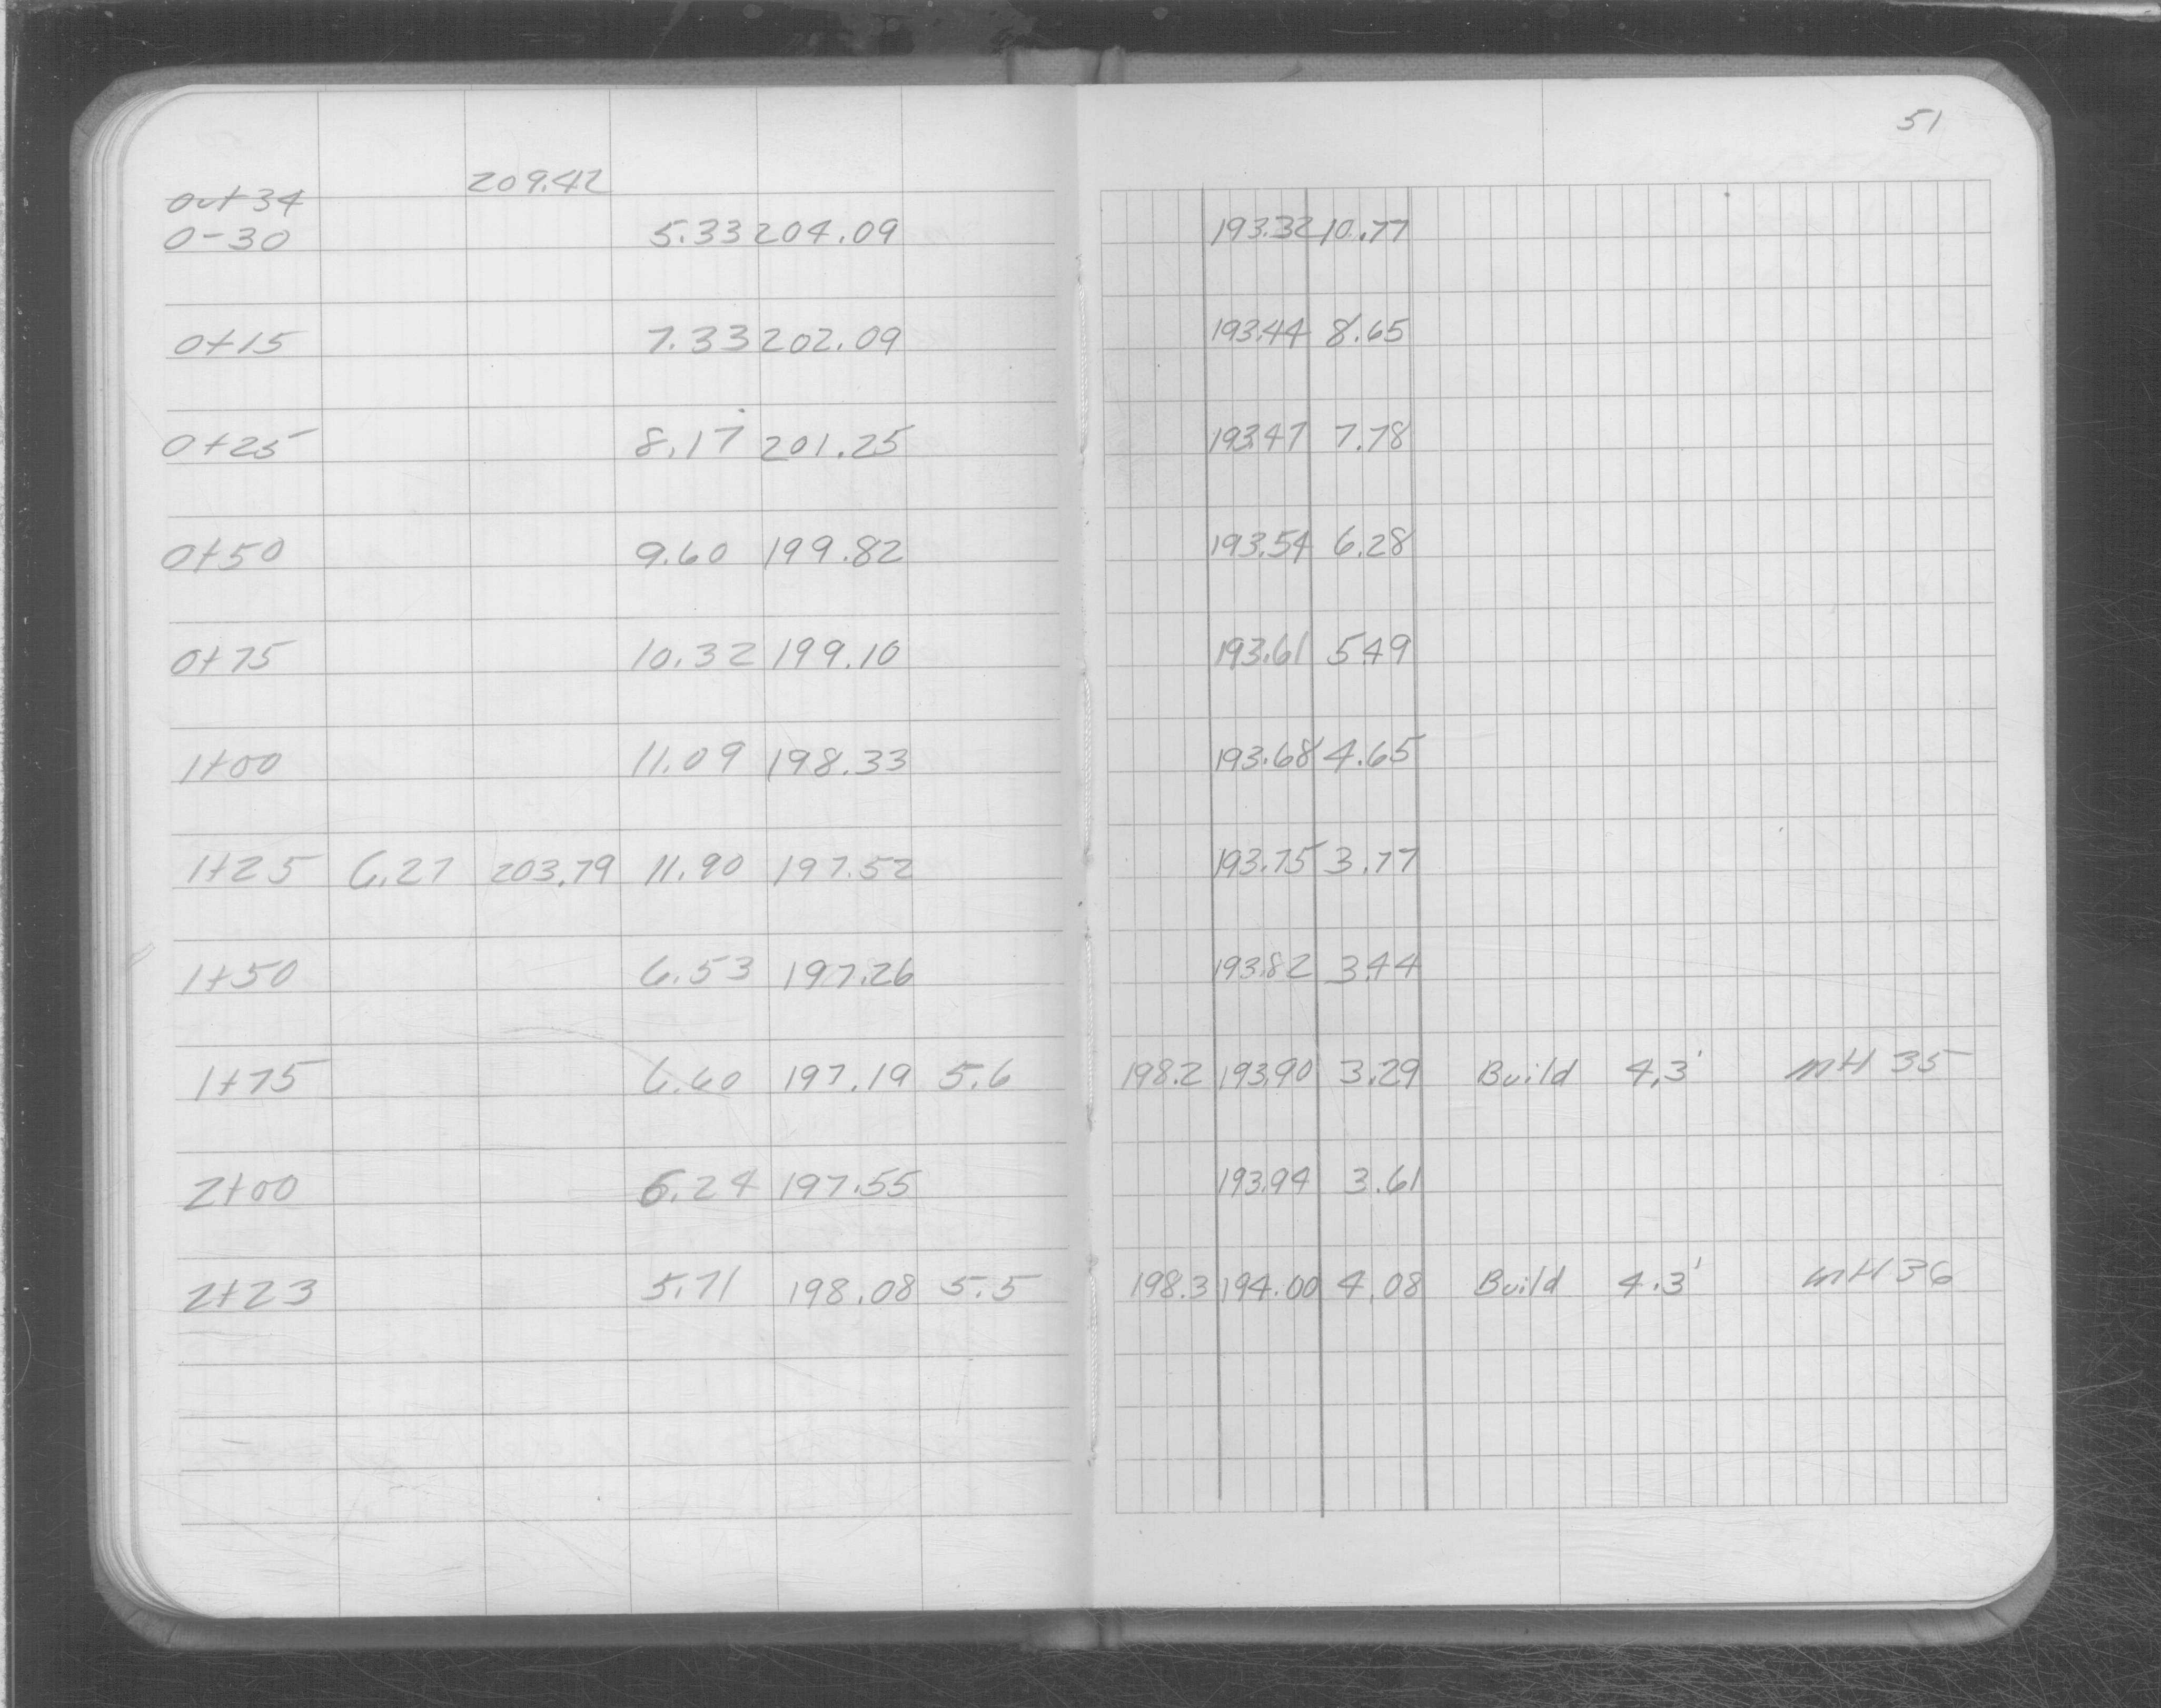 51
209.42
out 34
0-30 5.33 204.09 193.32 10.77
0+15 7.33 202.09 193.44 8.65
0+25 8.17 201.25 193.47 7.78
0+50 9.60 199.82 193.54 6.28
0+75 10.32 199.10 193.61 5.49
1+00 11.09 198.33 193.68 4.65
1+25 6.27 203.79 11.90 197.52 193.75 3.77
1+50 6.53 197.26 193.82 3.44
1+75 6.60 197.19 5.6 198.2 193.90 3.29 Build 4.3' MH 35
2+00 6.24 197.55 193.94 3.61
2+23 5.71 198.08 5.5 198.3 194.00 4.08 Build 4.3' MH 36